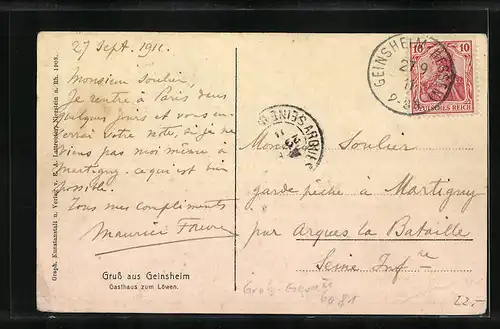 27 Sept. 1911.
Monsieur Soulier,
Je rentre à Paris dans
quelques jours et vous en-
verrai votre note, si je ne
viens pas moi même à
Martigny ce qui est bien
possible.
Tous mes compliments
Maurice Favre
Gruß aus Geinsheim
Gasthaus zum Löwen.
Graph. Kunstanstalt u. Verlag v.
GEINSHEIM (HESSEN)
27 9
11
10 10
DEUTSCHES REICH
Monsieur Soulier
garde pêche à Martigny
par Arques la Bataille
Seine Infre
Groß-Gerau
6081
22.-